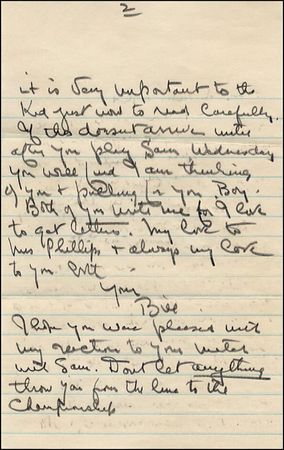 2
it is very important to the
Kid just now to read carefully.
If this doesnt arrive until
after you play Sam Wednesday
you will find I am thinking
of you & pulling for you Boy.
Both of you write me for I love
to get letters. My love to
Mrs Phillips & always my love
to you
Your
Bill
I hope you were pleased with
my reaction to your match
with Sam. Dont let anything
throw you from the line to the
Championship